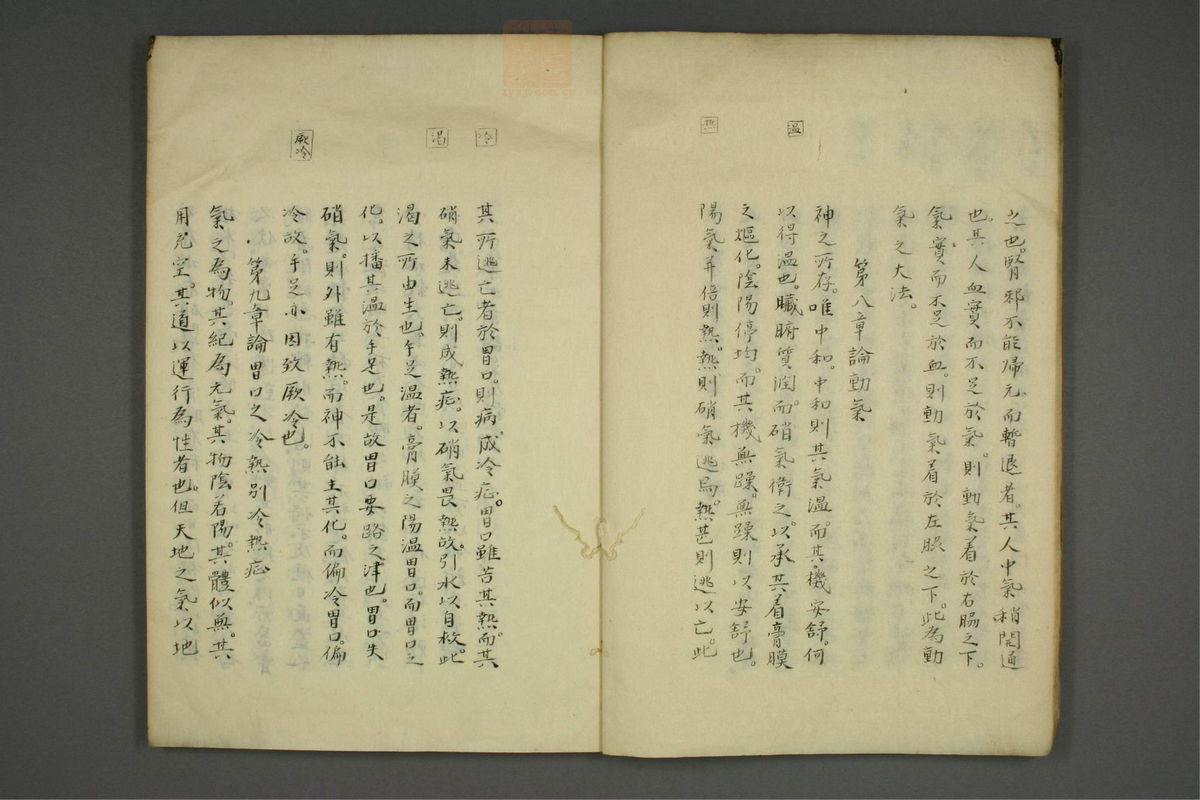 之也。腎邪不能帰元。而暫退者。其人中氣稍開通
也。其人血實而不足於氣。則動氣着於右脇之下。
氣實而不足於血。則動氣着於左眼之下。此為動
氣之大法。
第八章論動氣
温
神之所存。唯中和。中和則其氣温。而其機安舒。何
以得温也。臓腑質潤。而硝氣衛之。以承其着膏膜
之煴化。陰陽停均。而其機無躁。無躁則以安舒也。
熱
陽氣并倍則熱。熱則硝氣逃焉。熱甚則逃以亡。此
冷
其所逃亡者於胃口。則病成冷症。胃口雖苦其熱。而其
渇
硝氣未逃亡。則成熱症。以硝氣畏熱故。引水以自救。此
渇之所由生也。手足温者。膏膜之陽温胃口。而胃口之
化。以播其温於手足也。是故胃口要路之津也。胃口失
硝氣。則外雖有熱。而神不能主其化。而偏冷胃口。偏
厥冷
冷故。手足亦因致厥冷也。
第九章論胃口之冷熱別冷熱症
氣之為物。其紀為元氣。其物陰着陽。其體似無。其
用充空。其道以運行為性者也。但天地之氣以地